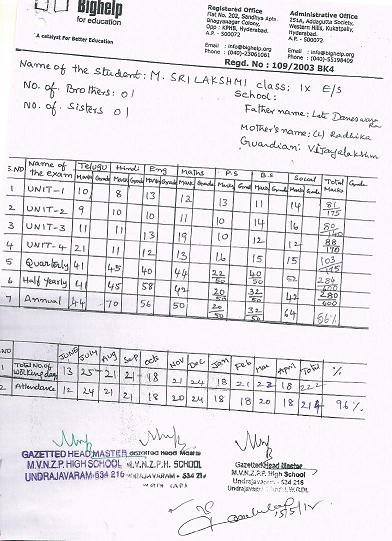 Bighelp
for education
"A catalyst For Better Education
Registered Office
Flat No. 202, Sandhya Apts
Bhagyanagar Colony,
Opp : KPHB, Hyderabad.
A.P. - 500072
Email : info@bighelp.org
Phone : (040)-23061061
Administrative Office
251A, Addagutta Society,
Western Hills, Kukatpally,
Hyderabad.
A.P. - 500072
Email : info@bighelp.org
Phone : (040)-55198409
Regd. No : 109/2003 BK4
Name of the Student: M. SRI LAKSHMI class: IX E/S
NO. of Brothers: 01 School:
NO. of Sisters 01
Father name: Late Daneswara Rao
Mother's name: (L) Radhika
Guardian: Vijayalakshmi
S.NO Name of the Exam Telugu Hindi Eng Maths P.S B.S Social Total Marks Grade
Marks Grade Marks Grade Marks Grade Marks Grade Marks Grade Marks Grade Marks Grade
1 UNIT-1 10 8 13 12 13 11 14 81/175
2 UNIT-2 9 10 10 11 10 14 16 80
3 UNIT-3 11 11 13 19 10 12 12 88/175
4 UNIT-4 21 11 12 13 16 15 15 103/175
5 Quarterly 41 45 40 44 22/50 40/50 52 284
6 Half yearly 41 45 58 42 20/50 32/50 42 280/600
7 Annual 44 70 56 50 20/50 32/50 64 56%
NO JUNE JULY Aug Sep Octo Nov Dec Jan Feb Mar April Total %
1 Total No. of working days 13 25 21 21 18 21 24 18 21 22 18 222
2 Attendance 12 24 21 21 18 20 24 18 18 20 18 214 96%
GAZETTED HEAD MASTER
M.V.N.Z.P. HIGH SCHOOL
UNDRAJAVARAM - 534 216
Gazetted Head Master
M.V.N.Z.P.H. SCHOOL
UNDRAJAVARAM - 534 216
Gazetted Head Master
M.V.N.Z.P High School
UNDRAJAVARAM